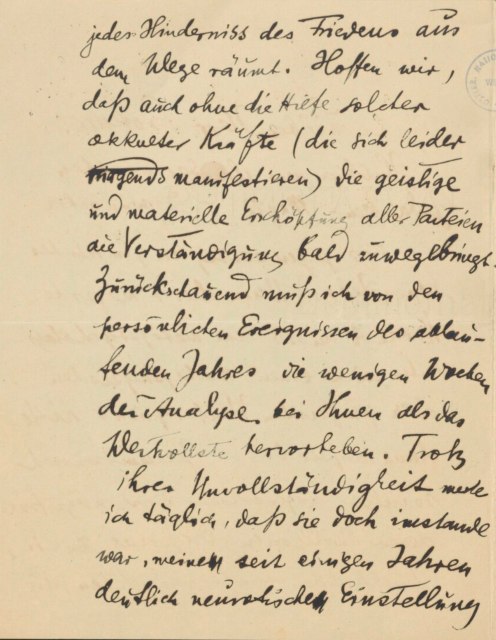 jedes Hinderniss des Friedens aus
dem Wege räumt. Hoffen wir,
daß auch ohne die Hilfe solcher
okkulter Kräfte (die sich leider
nirgends manifestieren) die geistige
und materielle Erschöpfung aller Parteien
die Verständigung bald zuwegebringt.
Zurückschauend muß ich von den
persönlichen Ereignissen des ablau-
fenden Jahres die wenigen Wochen
der Analyse bei Ihnen als das
Wertvollste hervorheben. Trotz
ihrer Unvollständigkeit merke
ich täglich, daß sie doch imstande
war, meinen seit einigen Jahren
deutlich neurotischen Einstellung